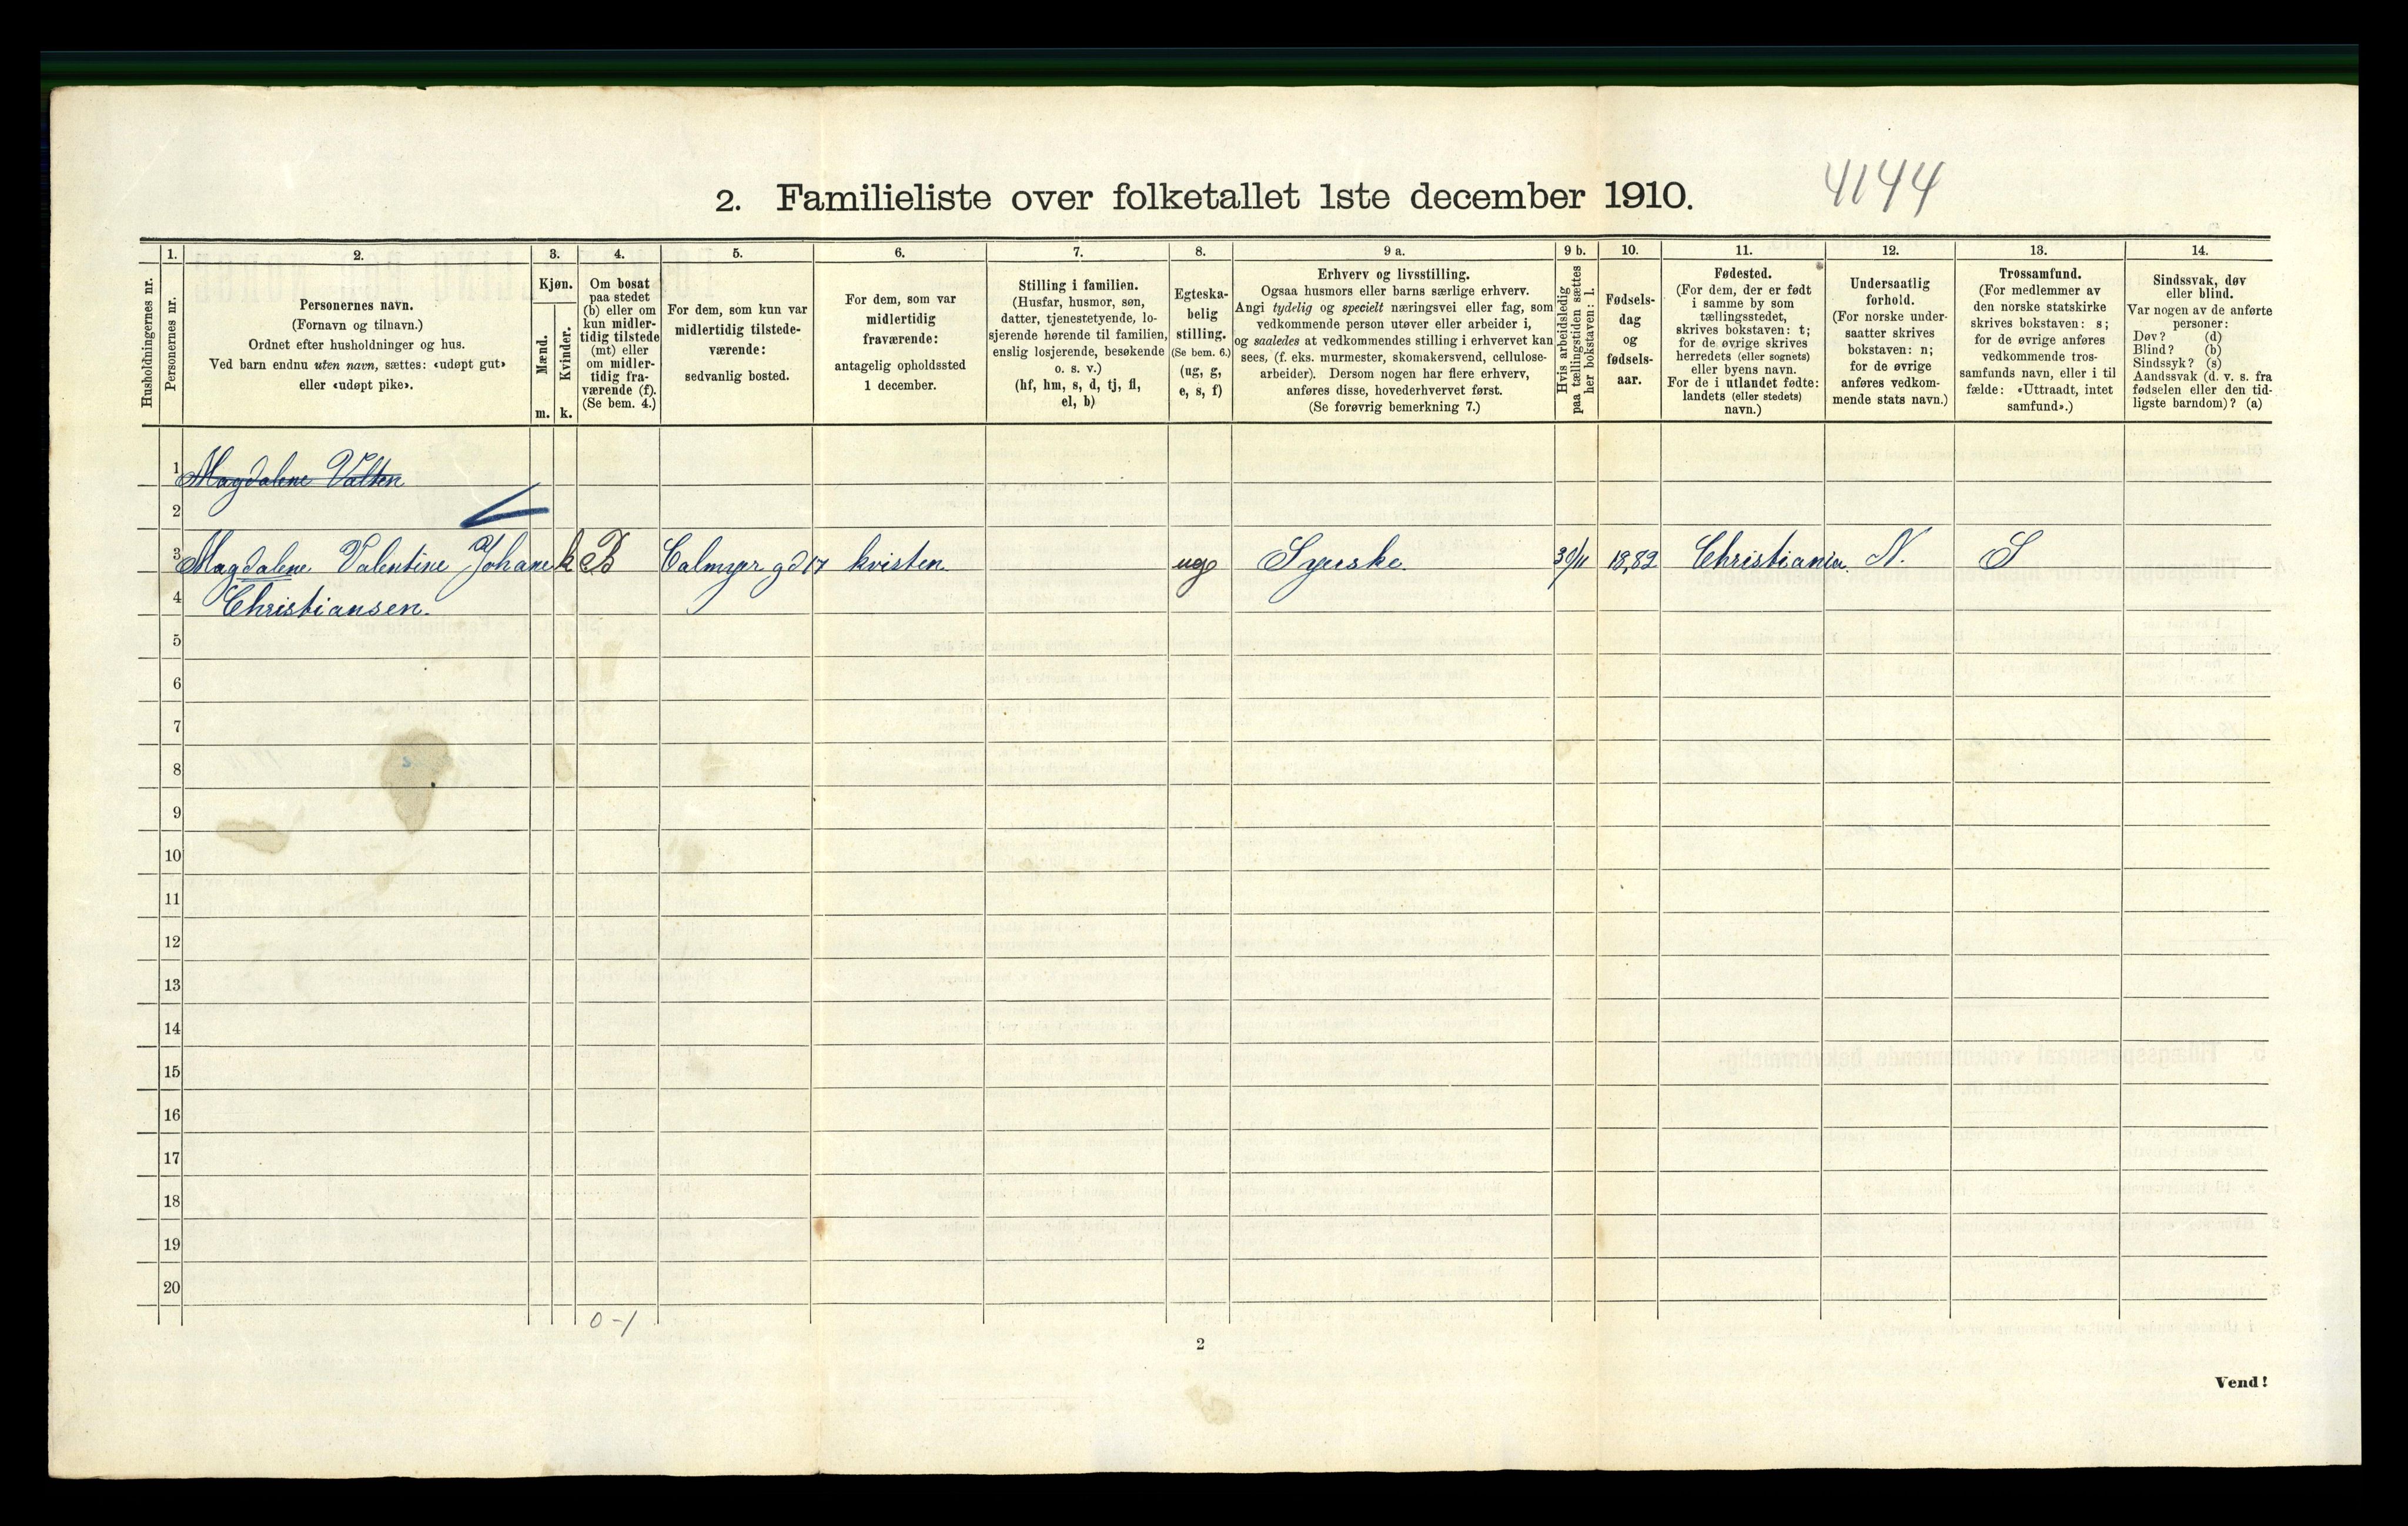 2. Familieliste over folketallet 1ste december 1910. 4144
Husholdningernes nr.
1.
Personernes nr.
2.
Personernes navn.
(Fornavn og tilnavn.)
Ordnet efter husholdninger og hus.
Ved barn endnu uten navn, sættes: «udøpt gut»
eller «udøpt pike».
3.
Kjøn.
Mænd.
m.
Kvinder.
k.
4.
Om bosat
paa stedet
(b) eller om
kun midler-
tidig tilstede
(mt) eller
om midler-
tidig fra-
værende (f).
(Se bem. 4.)
5.
For dem, som kun var
midlertidig tilstede-
værende:
sedvanlig bosted.
6.
For dem, som var
midlertidig
fraværende:
antagelig opholdssted
1 december.
7.
Stilling i familien.
(Husfar, husmor, søn,
datter, tjenestetyende, lo-
sjerende hørende til familien,
enslig losjerende, besøkende
o. s. v.)
(hf, hm, s, d, tj, fl,
el, b)
8.
Egteska-
belig
stilling.
(Se bem. 6.)
(ug, g,
e, s, f)
9 a.
Erhverv og livsstilling.
Ogsaa husmors eller barns særlige erhverv.
Angi tydelig og specielt næringsvei eller fag, som
vedkommende person utøver eller arbeider i,
og saaledes at vedkommendes stilling i erhvervet kan
sees, (f. eks. murmester, skomakersvend, cellulose-
arbeider). Dersom nogen har flere erhverv,
anføres disse, hovederhvervet først.
(Se forøvrig bemerkning 7.)
9 b.
Hvis arbeidsledig
paa tællingstiden sættes
her bokstaven: l.
10.
Fødsels-
dag
og
fødsels-
aar.
11.
Fødested.
(For dem, der er født
i samme by som
tællingsstedet,
skrives bokstaven: t;
for de øvrige skrives
herredets (eller sognets)
eller byens navn.
For de i utlandet fødte:
landets (eller stedets)
navn.)
12.
Undersaatlig
forhold.
(For norske under-
saatter skrives
bokstaven: n;
for de øvrige
anføres vedkom-
mende stats navn.)
13.
Trossamfund.
(For medlemmer av
den norske statskirke
skrives bokstaven: s;
for de øvrige anføres
vedkommende tros-
samfunds navn, eller i til
fælde: «Uttraadt, intet
samfund».)
14.
Sindssvak, døv
eller blind.
Var nogen av de anførte
personer:
Døv? (d)
Blind? (b)
Sindssyk? (s)
Aandssvak (d. v. s. fra
fødselen eller den tid-
ligste barndom)? (a)
1 Magdalene Valten
2
3 Magdalene Valentine Johane k B Calmyer gd 17 kvisten ug Syerske. 30/11 1882 Christiania. N. S
4 Christiansen.
5
6
7
8
9
10
11
12
13
14
15
16
17
18
19
20
0-1
2
Vend!